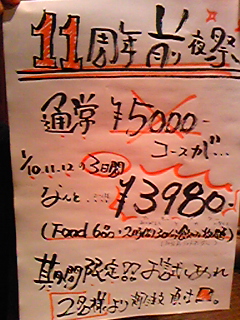 11周年前夜祭
通常 ¥5000-
コースが…
1/10.11.12の3日間
なんと… ¥3980-
(Food 6品・2時間30分飲み放題)
期間限定!! お試しあれ
2名様より